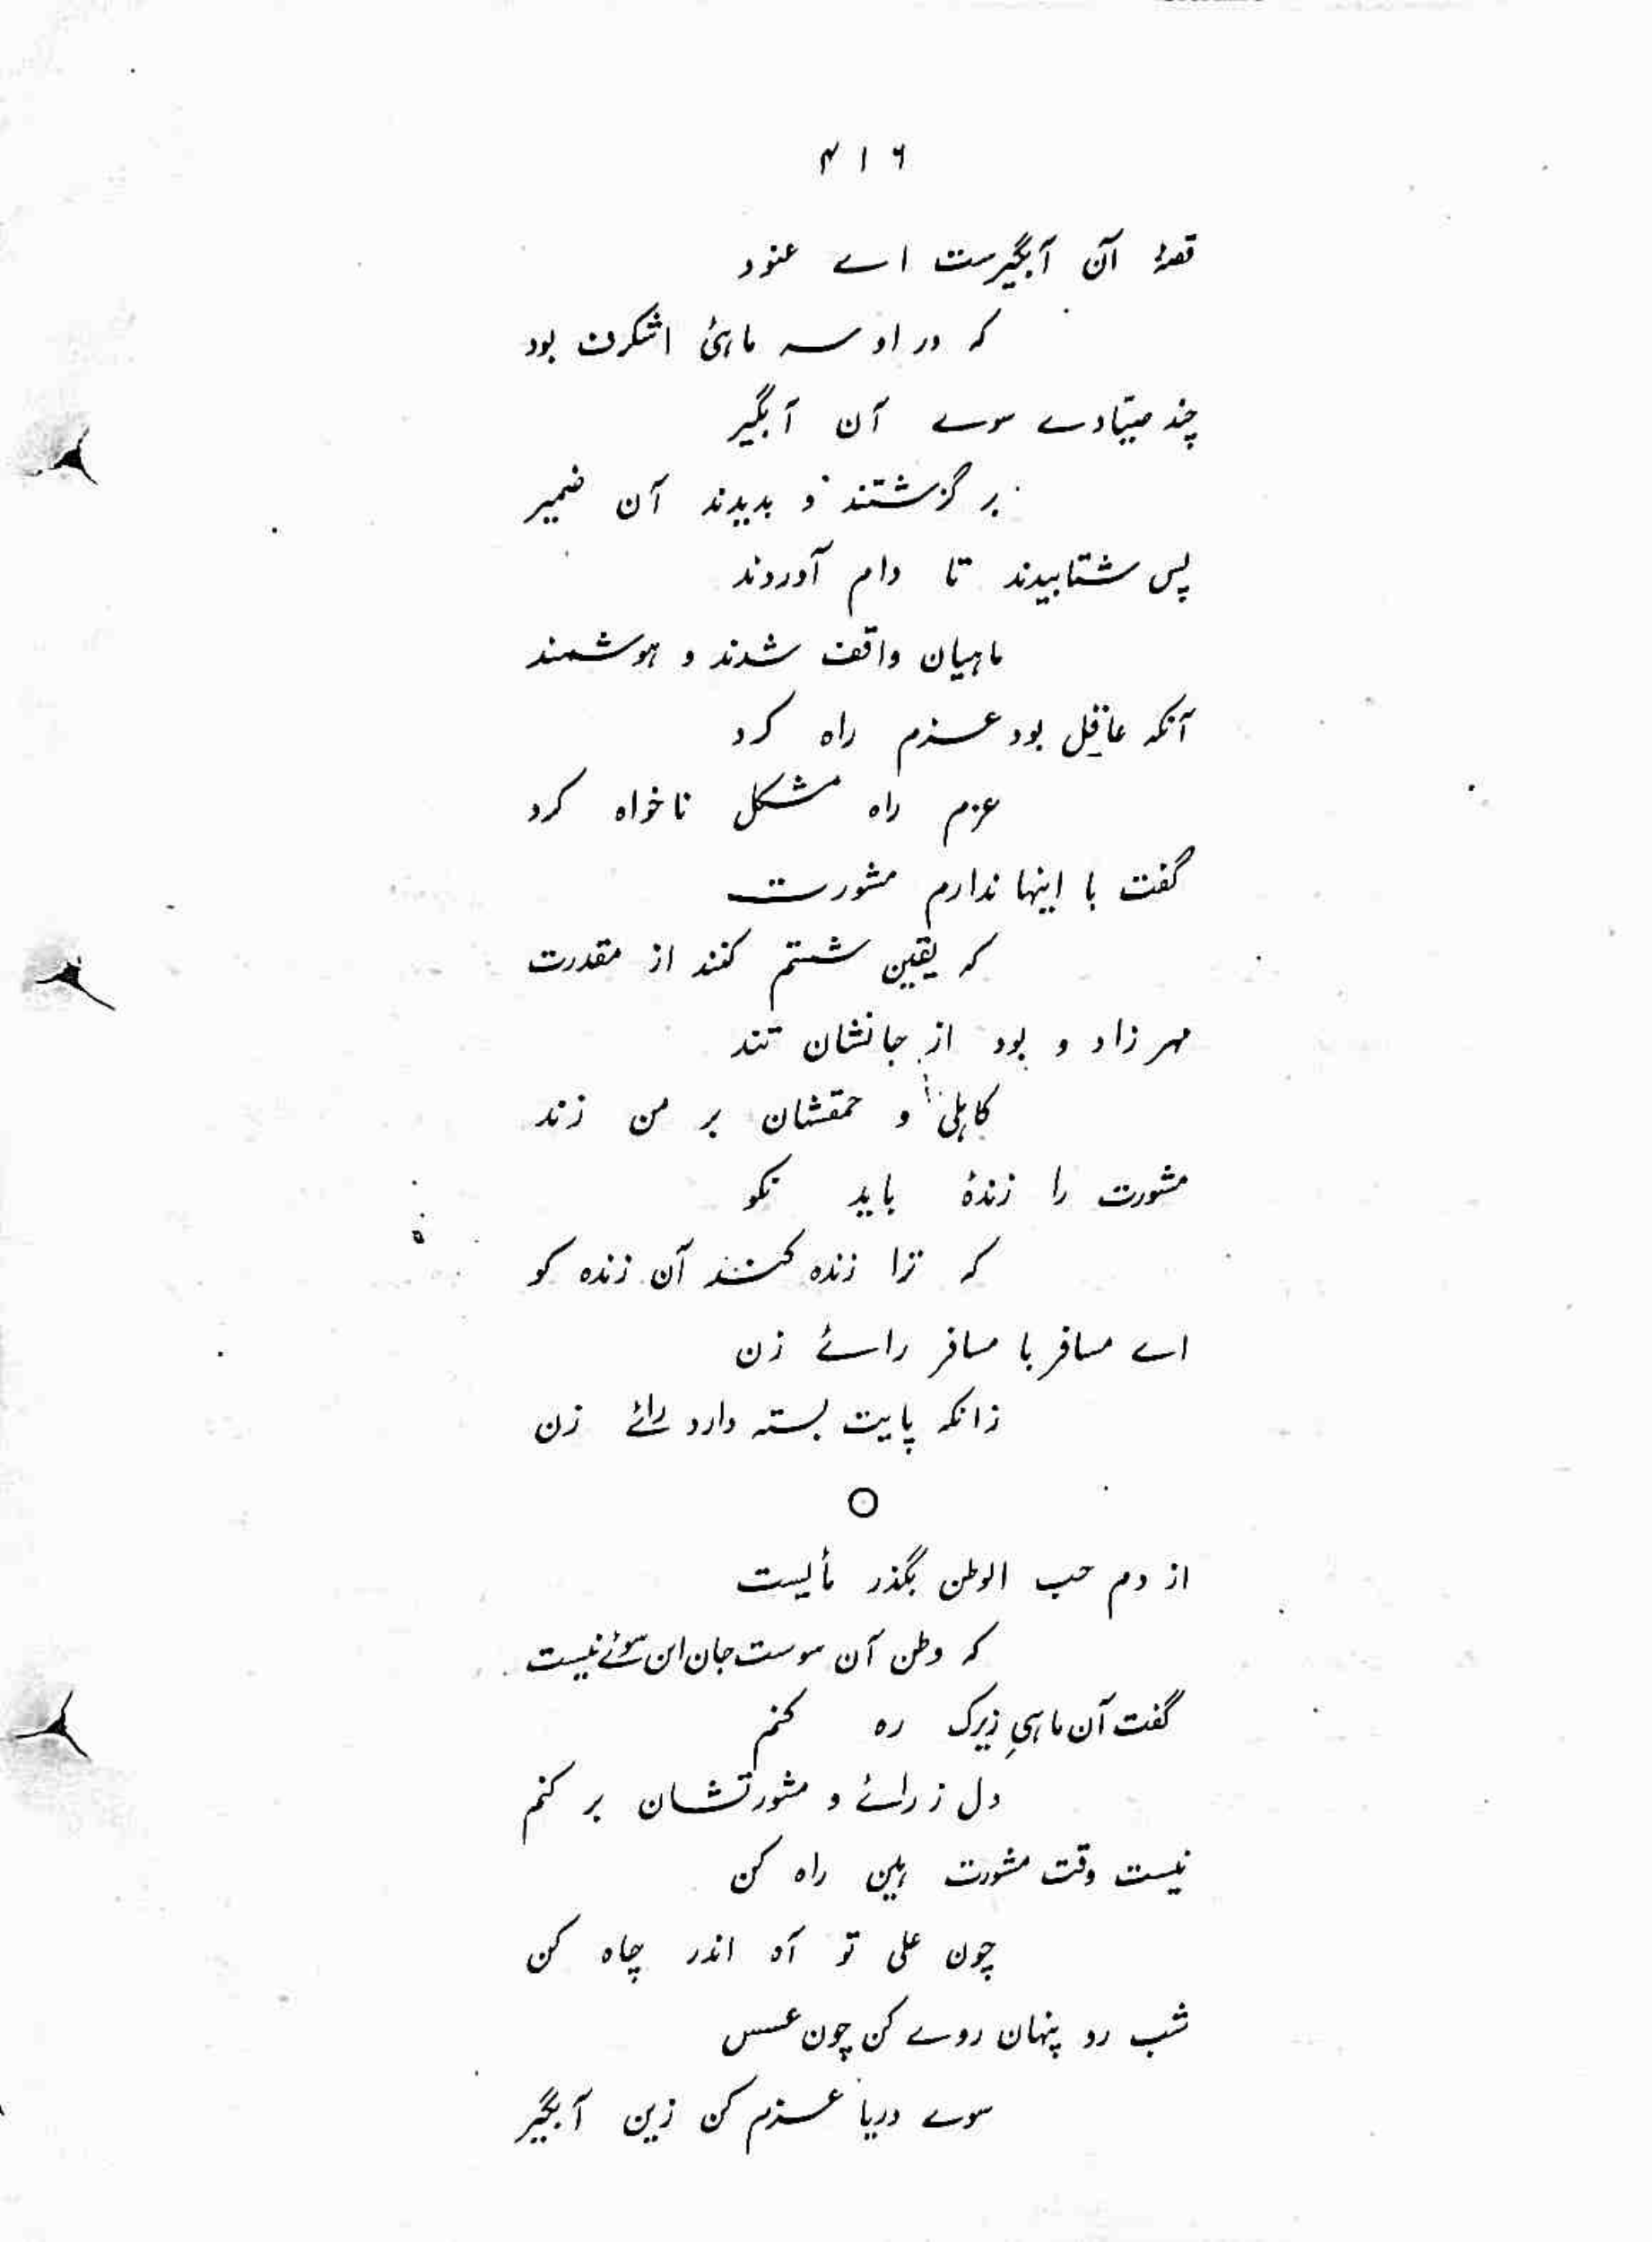 ۴۱۶
قصۂ آن آبگیرست اے عنود
که در او سه ماہئ اشگرف بود
چند صیّادے سوے آن آبگیر
بر گزشتند و بدیدند آن ضمیر
پس شتابیدند تا دام آوردند
ماہیان واقف شدند و ہوشمند
آنکه عاقِل بود عزم راه کرد
عزم راه مشکل ناخواه کرد
گفت با اینها ندارم مشورت
که یقین سُستم کنند از مقدرت
مهر زاد و بود از جانشان تند
کاہلی و حمقشان بر من زند
مشورت را زندۂ باید نکو
که ترا زنده کنند آن زنده کو
اے مسافر با مسافر رائے زن
زانکه پایت بسته دارد رائے زن
از دم حب الوطن بگذر مأیست
که وطن آن سوست جان این سوئے نیست
گفت آن ماہیِ زیرک ره کنم
دل ز رائے و مشورتشان بر کنم
نیست وقت مشورت ہین راه کن
چون علی تو آه اندر چاه کن
شب رو پنهان روے کن چون عسس
سوے دریا عزم کن زین آبگیر